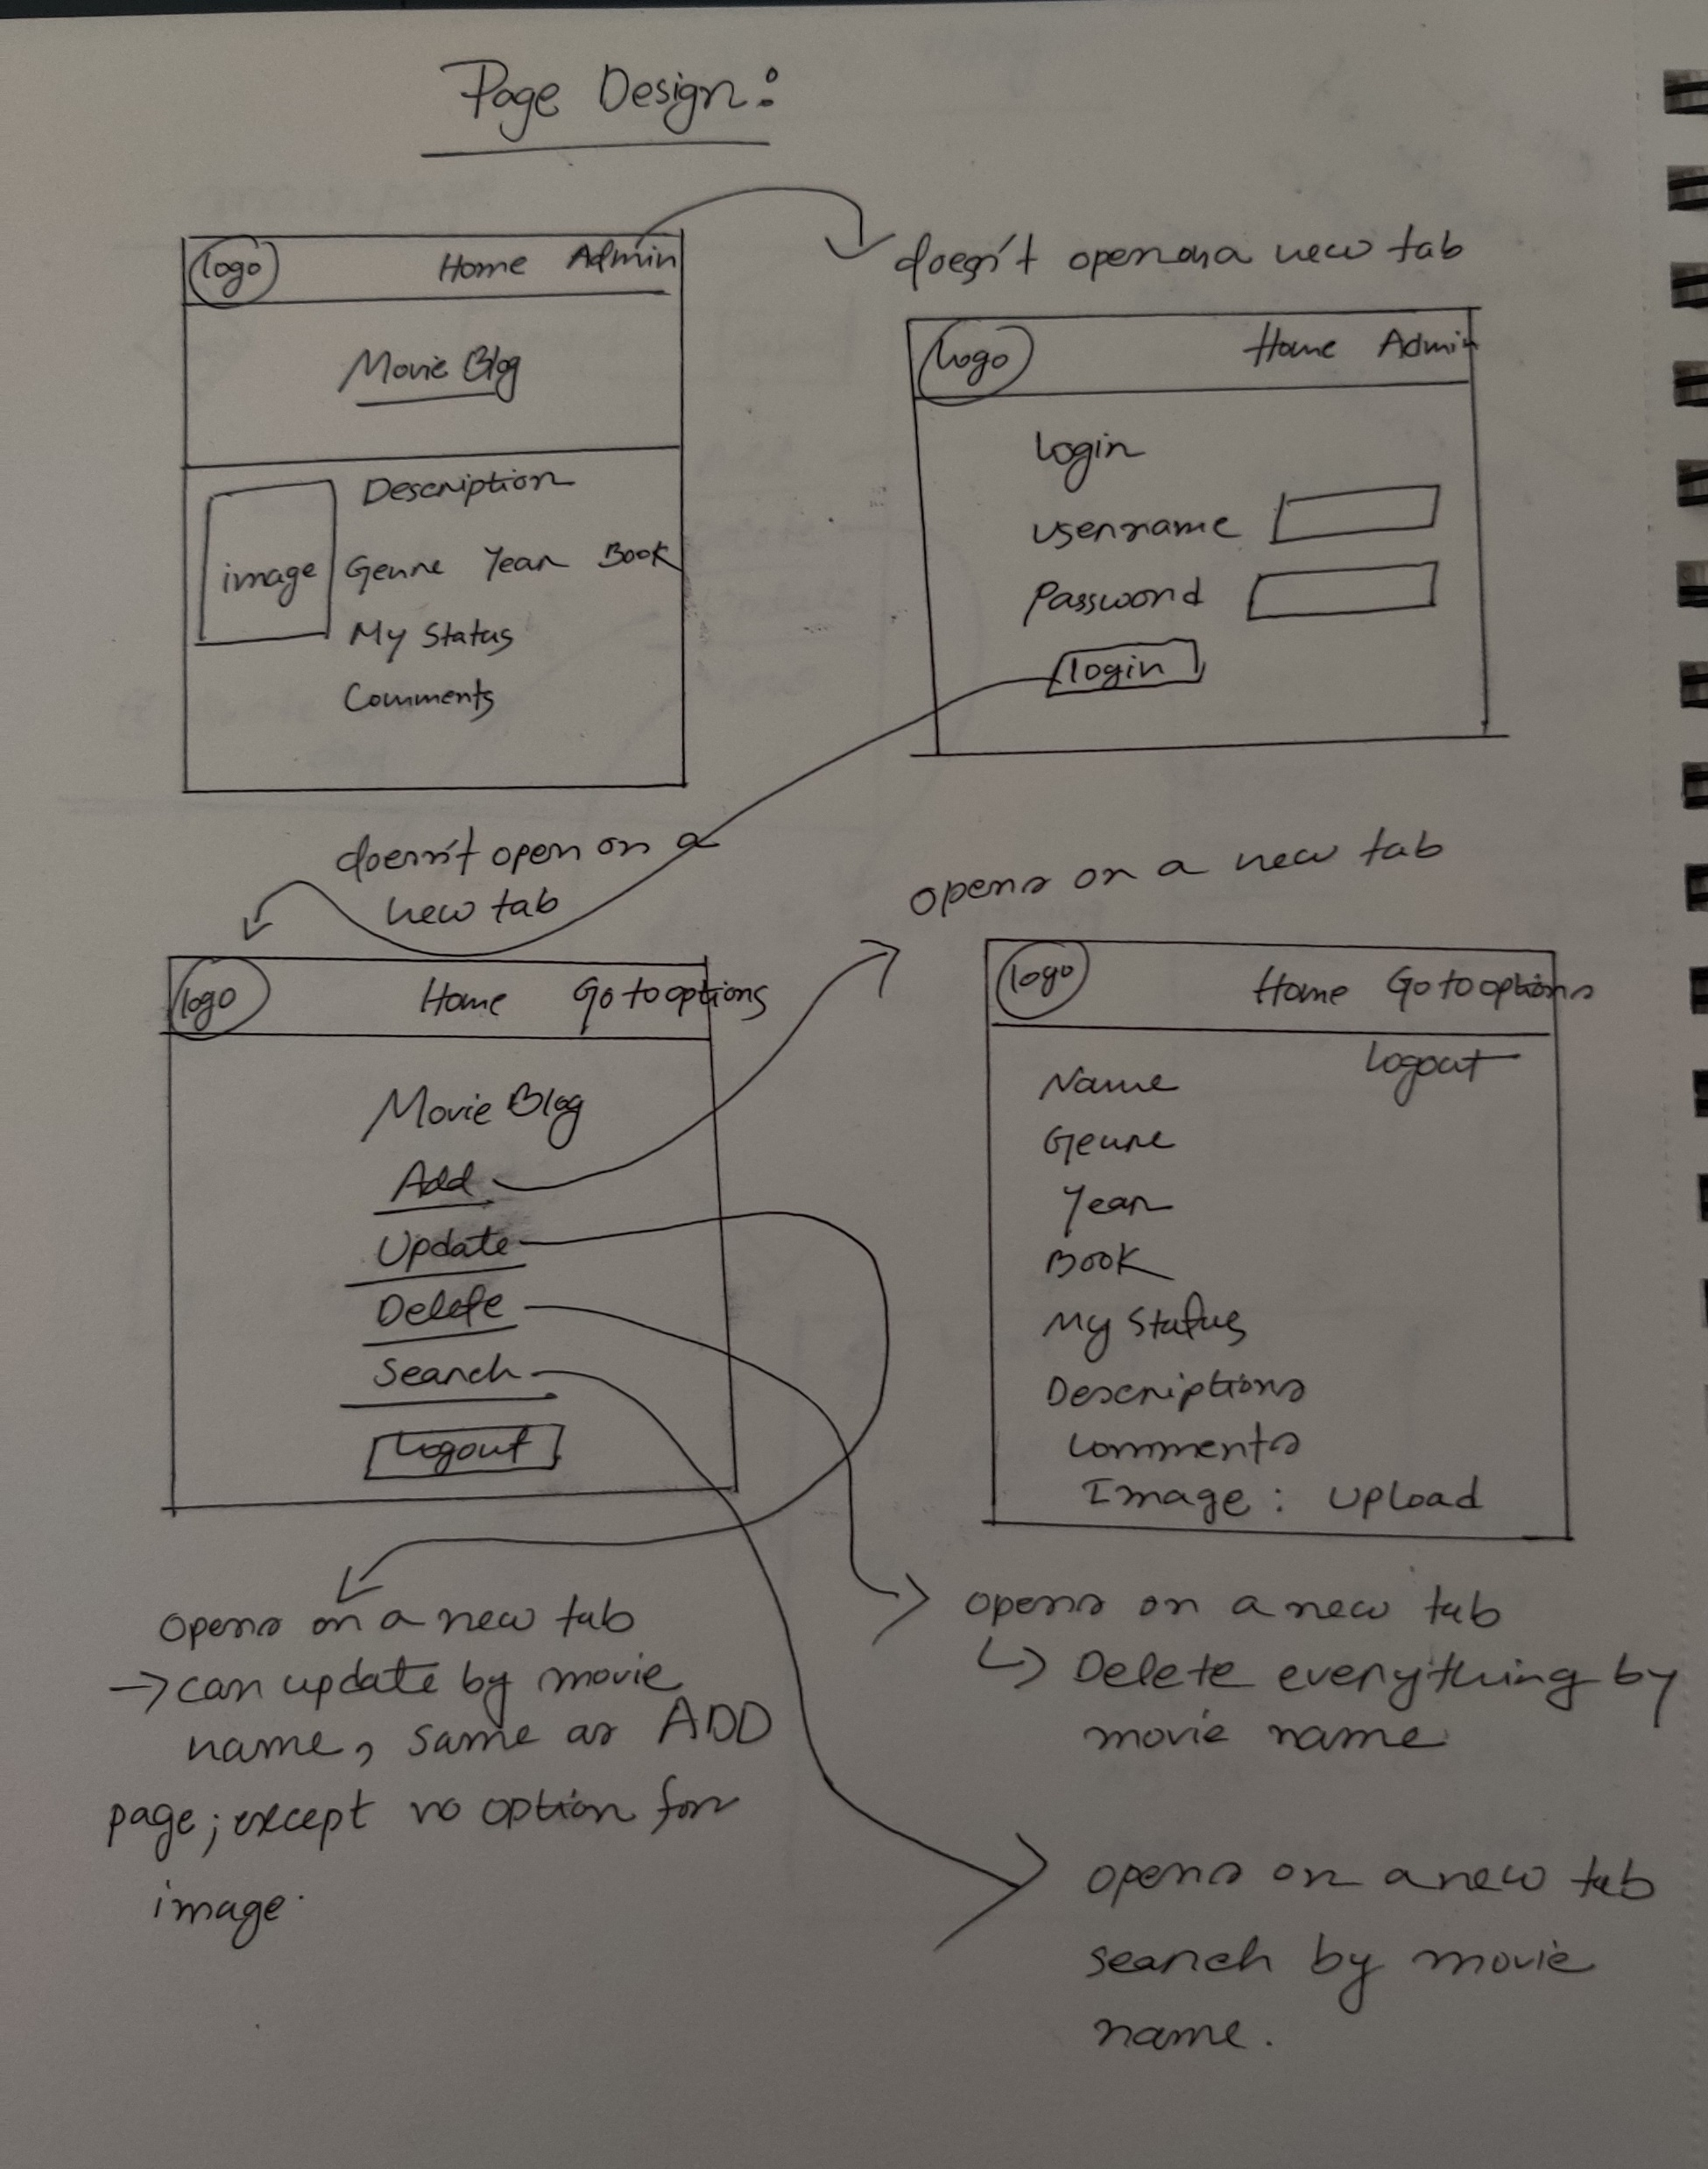 Page Design:
logo Home Admin
doesn't open on a new tab
Movie Blog
image
Description
Genre Year Book
My Status
Comments
logo Home Admin
Login
username
Password
login
doesn't open on a
new tab
logo Home Go to options
Movie Blog
Add
Update
Delete
Search
Logout
opens on a new tab
logo Home Go to options
Logout
Name
Genre
Year
Book
My Status
Descriptions
Comments
Image : Upload
opens on a new tab
→ can update by movie
name, same as ADD
page; except no option for
image.
opens on a new tab
↳ Delete everything by
movie name
opens on a new tab
search by movie
name.